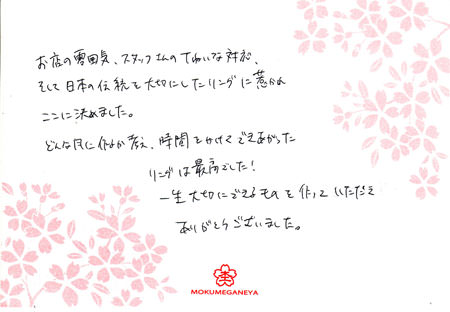 お店の雰囲気、スタッフさんのていねいな対応、
そして日本の伝統を大切にしたリングに惹かれ
ここに決めました。
どんな風に作るか考え、時間をかけてできあがった
リングは最高でした!
一生大切にできるものを作っていただき
ありがとうございました。
MOKUMEGANEYA